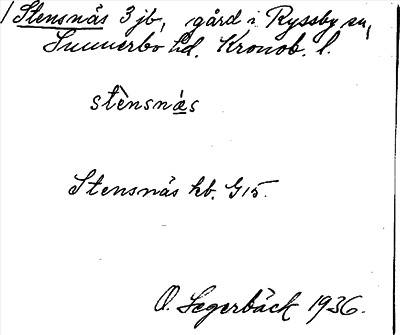 Stensnäs 3 jb, gård i Ryssby sn,
Sunnerbo hd. Kronob. l.
stènsnäs
Stensnäs kb. G15.
O. Segerbäck 1936.